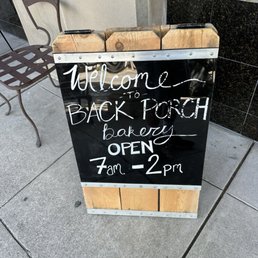 Welcome
TO
BACK PORCH
Bakery
OPEN
7am - 2pm